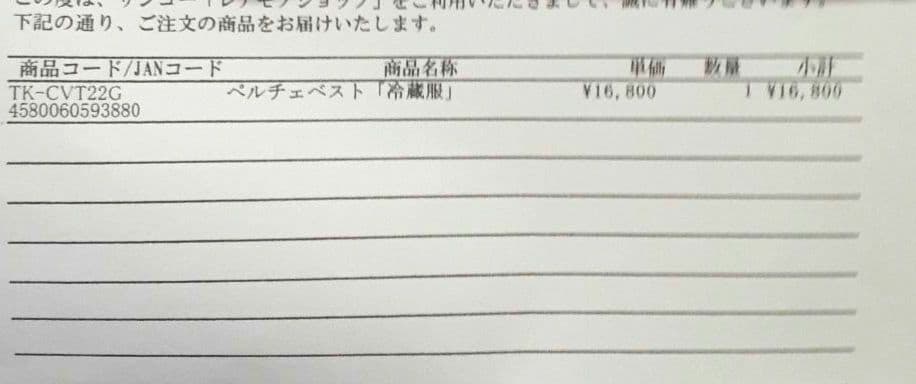 下記の通り、ご注文の商品をお届けいたします。
商品コード/JANコード 商品名称 単価 数量 小計
TK-CVT22G ペルチェベスト「冷蔵服」 ¥16,800 1 ¥16,800
4580060593880